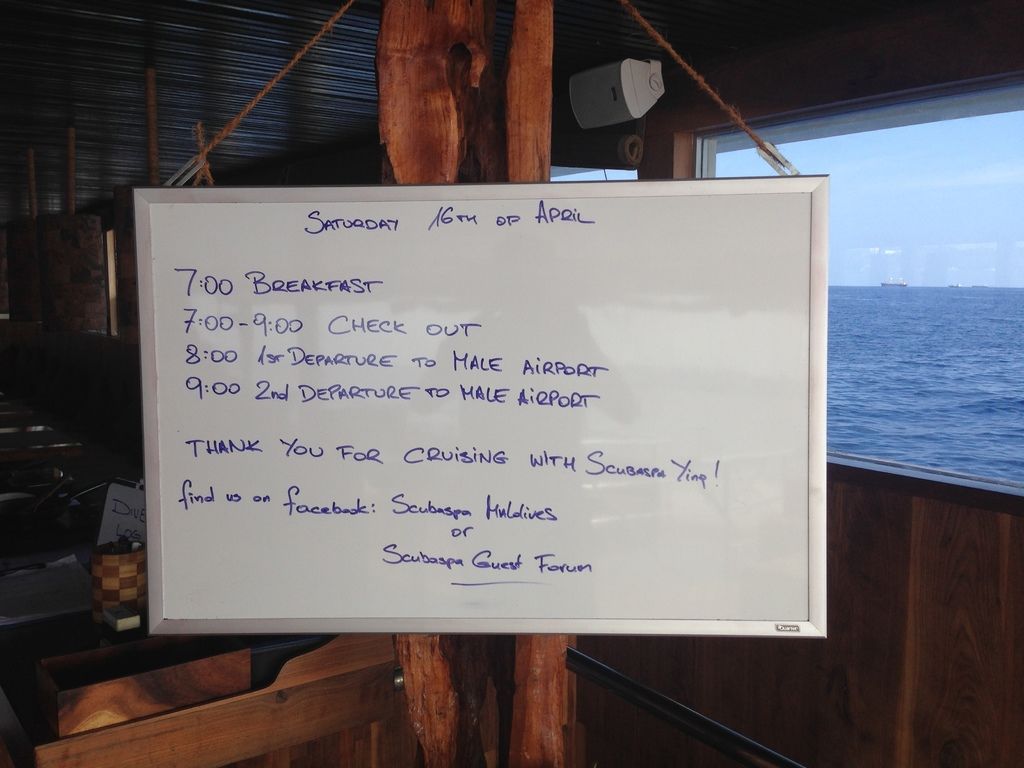 SATURDAY 16TH OF APRIL
7:00 BREAKFAST
7:00-9:00 CHECK OUT
8:00 1ST DEPARTURE TO MALE AIRPORT
9:00 2nd DEPARTURE TO MALE AIRPORT
THANK YOU FOR CRUISING WITH SCUBASPA Ying!
find us on facebook: Scubaspa Maldives
or
Scubaspa Guest Forum
DIVE
LOG